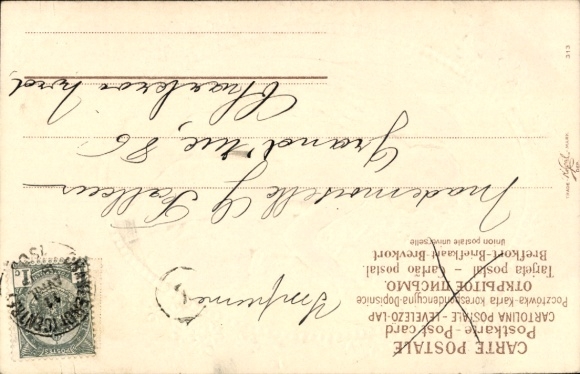 CARTE POSTALE
Postkarte - Post card
CARTOLINA POSTALE - LEVELEZŐ-LAP
Pocztówka-Karta korespondencyjna-Dopisnice
ОТКРЫТОЕ ПИСЬМО.
Tarjeta postal - Cartão postal.
Brefkort-Briefkaart-Brevkort
Union postale universelle
Imprimé
Mademoiselle G
Grand' rue, 86
Charleroi Nord
313